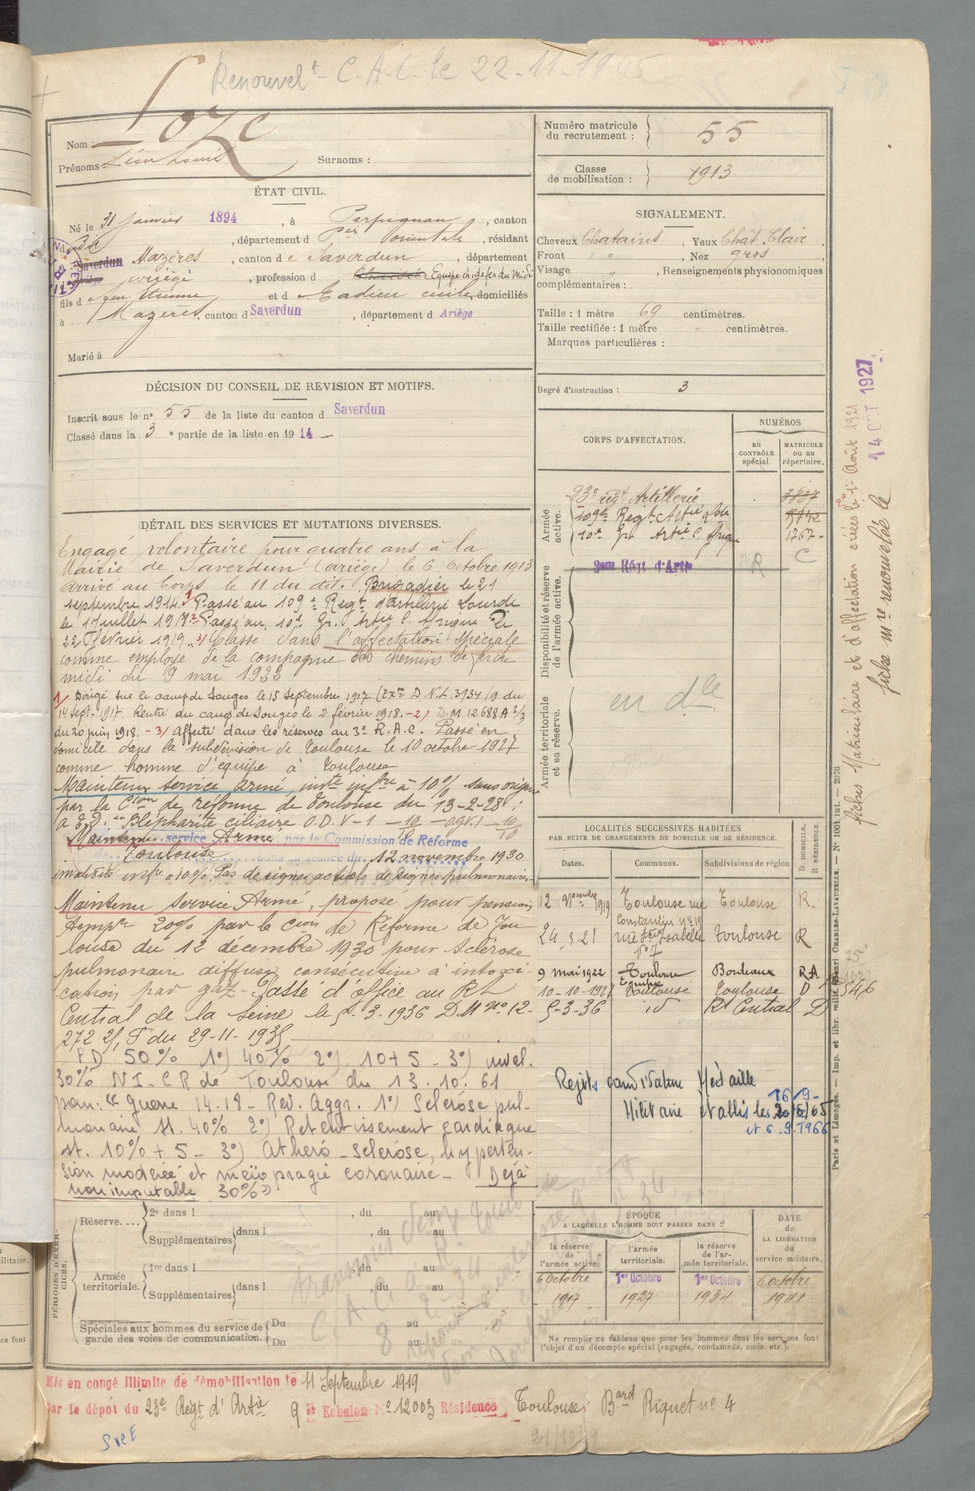 Renouvelt C.A.C. le 22-11-1945
Nom : Loze
Prénoms Léon Louis Surnoms :
Numéro matricule du recrutement : 55
Classe de mobilisation : 1913
ÉTAT CIVIL.
Né le 31 Janvier 1894, à Perpignan, canton
dudit, département d Pées Orientales, résidant
à Mazères, canton d e Saverdun, département
Ariège, profession d Equipe ch. de fer du Midi
fils d e feu Etienne et d e Cadieu Cécile, domiciliés
à Mazères, canton d Saverdun, département d Ariège
Marié à
SIGNALEMENT.
Cheveux Chatains, Yeux Chât. Clair
Front " , Nez gros
Visage " , Renseignements physionomiques
complémentaires :
Taille : 1 mètre 69 centimètres.
Taille rectifiée : 1 mètre " centimètres.
Marques particulières :
Degré d'instruction : 3
DÉCISION DU CONSEIL DE REVISION ET MOTIFS.
Inscrit sous le no 55 de la liste du canton d Saverdun
Classé dans la 3 e partie de la liste en 19 14
DÉTAIL DES SERVICES ET MUTATIONS DIVERSES.
Engagé volontaire pour quatre ans à la
Mairie de Saverdun (Ariège) le 6 Octobre 1913
Arrivé au Corps le 11 du dit. Brigadier le 21
septembre 1914. 1) Passé au 109e Régt d'artillerie Lourde
le 1er Juillet 1917 2) Passé au 10e Gr. Artie C. Afrique le
22 Février 1919 3) Classé dans l'affectation spéciale
comme employé de la compagnie des chemins de fer du
midi du 9 mai 1922
1) Dirigé sur le camp de Souges le 15 Septembre 1917 (Exon D. N.L. 3134/9 du
14 Sept. 1917. Rentré du camp de Souges le 2 février 1918. - 2) D.M. 12688 A 2/3
du 20 juin 1918. - 3) Affecté dans les réserves au 3e R.A.C. Passé en
domicile dans la subdivision de Toulouse le 10 octobre 1927
comme homme d'équipe à Toulouse
Maintenu service armé, inté infre à 10% sans origine
par la Cion de réforme de Toulouse du 13-2-28 :
Blépharite ciliaire O.D. V-1
Maintenu service Armé par la Commission de Réforme
de Toulouse dans sa séance du 12 novembre 1930
invalidité infre à 10%. Pas de signes actuels de lésions pulmonaires.
Maintenu Service Armé, proposé pour pension
tempre 20% par la Cion de Réforme de Tou
louse du 12 décembre 1930 pour sclérose
pulmonaire diffuse consécutive à intoxi-
cation par gaz. Passé d'office au Rt
Central de la Seine le 5.3.1936 D.M. no 12.
272 2/1 F du 29-11-1935
P.D 50% 1°) 40% 2°) 10+5 - 3°) nivel.
30% NI. CR de Toulouse du 13.10.61
pour: "guerre 14.18 - Rev. Aggr. 1°) Sclérose pul-
monaire st. 40% 2°) Retentissement cardiaque
st. 10% + 5 - 3°) Athéro-sclérose, hyperten-
sion modérée et meïopragie coronaire - Déjà
non imputable 30%"
CORPS D'AFFECTATION.
NUMÉROS
au CONTRÔLE spécial.
MATRICULE ou au répertoire.
Armée active.
23e régt Artillerie 3837
109e Régt Artie Lde
10e Gr Artie C. Afrique 1767
Disponibilité et réserve de l'armée active.
3me Régt d'Artie R C
Armée territoriale et sa réserve.
en dle
LOCALITÉS SUCCESSIVES HABITÉES
PAR SUITE DE CHANGEMENTS DE DOMICILE OU DE RÉSIDENCE.
Dates. Communes. Subdivisions de région D DOMICILE. R RÉSIDENCE.
12 Novembre 1919 Toulouse rue Constantin no 19 Toulouse R.
24.3.21 rue Ste Isabelle no 7 Toulouse R
9 mai 1922 Toulouse Bordeaux RA
10-10-1927 Toulouse Toulouse D
5-3-36 id Rt Central D
Rejets candidature Médaille
Militaire établis les 16/9- 65
et 6.9.1966
PÉRIODES D'EXERCICES.
Réserve. 2e dans l , du au
Supplémentaires dans l , du au
Armée territoriale. 1re dans l , du au
Supplémentaires dans l du au
Spéciales aux hommes du service de garde des voies de communication. Du au
Du au
ÉPOQUE
A LAQUELLE L'HOMME DOIT PASSER DANS :
la réserve de l'armée active. l'armée territoriale. la réserve de l'armée territoriale.
DATE de LA LIBÉRATION du service militaire.
6 Octobre 1917 1er Octobre 1927 1er Octobre 1934 6 octobre 1941
Ne remplir ce tableau que pour les hommes dont les services font
l'objet d'un décompte spécial (engagés, condamnés, omis, etc.).
Mis en congé illimité de démobilisation le 11 Septembre 1919
par le dépôt du 23e Régt d'Artie 9 e Echelon No 12003 Résidence Toulouse Bard Riquet no 4
fiches Matriculaire et d'affectation créées le 1er Août 1921
fiche mre renouvelée le 14 OCT 1927
Paris et Limoges. — Imp. et libr. milit. Henri CHARLES-LAVAUZELLE. — No 1001 int. — 2076